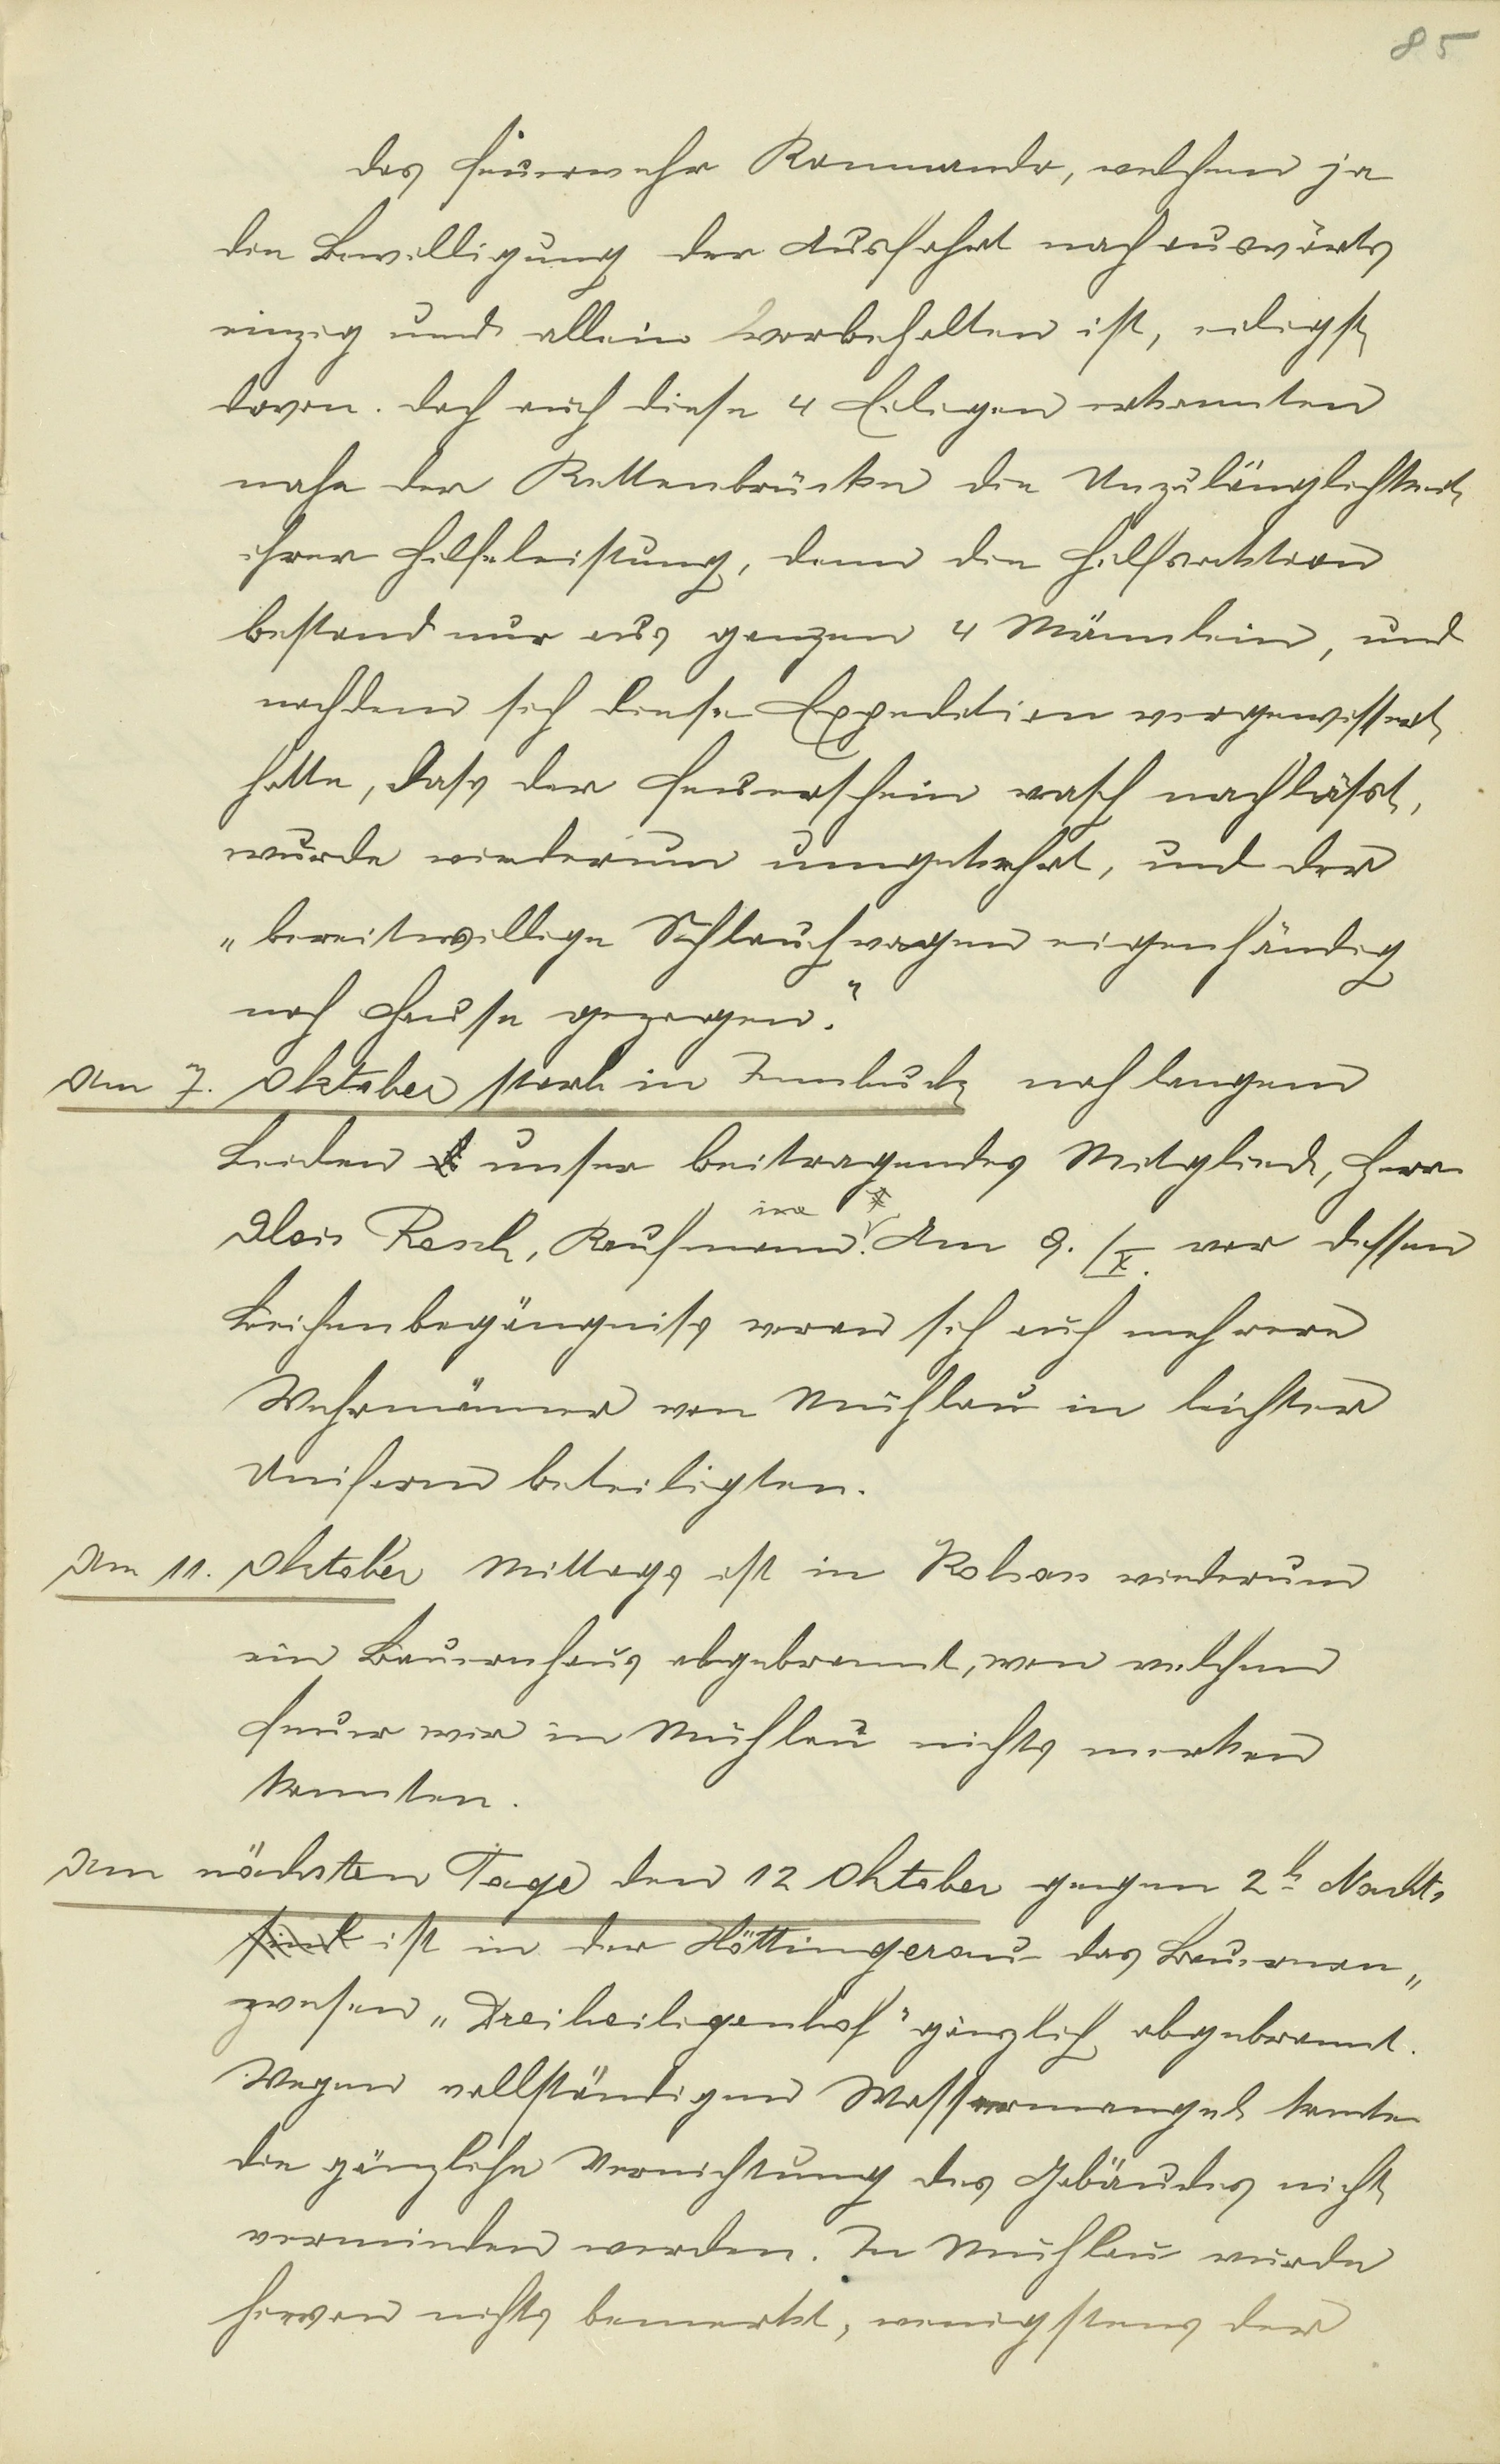 85
das Feuerwehr Kommando, welchem ja
die Bewilligung der Ausfahrt nach auswärts
einzig und allein vorbehalten ist, eiligst
davon. Doch auch diese 4 Eiligen erkannten
nahe der Kettenbrücke die Unzulänglichkeit
ihrer Hilfeleistung, denn die Hilfsaktion
bestand nur aus ganzen 4 Männlein, und
nachdem sich diese Expedition vergewissert
hatte, dass der Feuerschein rasch nachlässt,
wurde wiederum umgekehrt, und der
„bereitwillige Schlauchwagen eigenhändig
nach Hause gezogen."
Am 7. Oktober starb in Innbuck nach langem
Leiden unser beitragendes Mitglied, Herr
Alois Resch, Kaufmann. Am 9./X. war dessen
Leichenbegängniss woran sich auch mehrere
Wehrmänner von Mühlau in leichter
Uniform beteiligten.
Am 11. Oktober Mittags ist in Kolsass wiederum
ein Bauernhaus abgebrannt, von welchem
Feuer wir in Mühlau nichts merken
konnten.
Am nächsten Tage den 12 Oktober gegen 2h Nachts
sind ist in der Höttingerau das Bauernan„
wesen „Dreiheiligenhof" gänzlich abgebrannt.
Wegen vollständigen Wassermangel konnte
die gänzliche Vernichtung des Gebäudes nicht
vermieden werden. In Mühlau wurde
hievon nichts bemerkt, wenigstens der